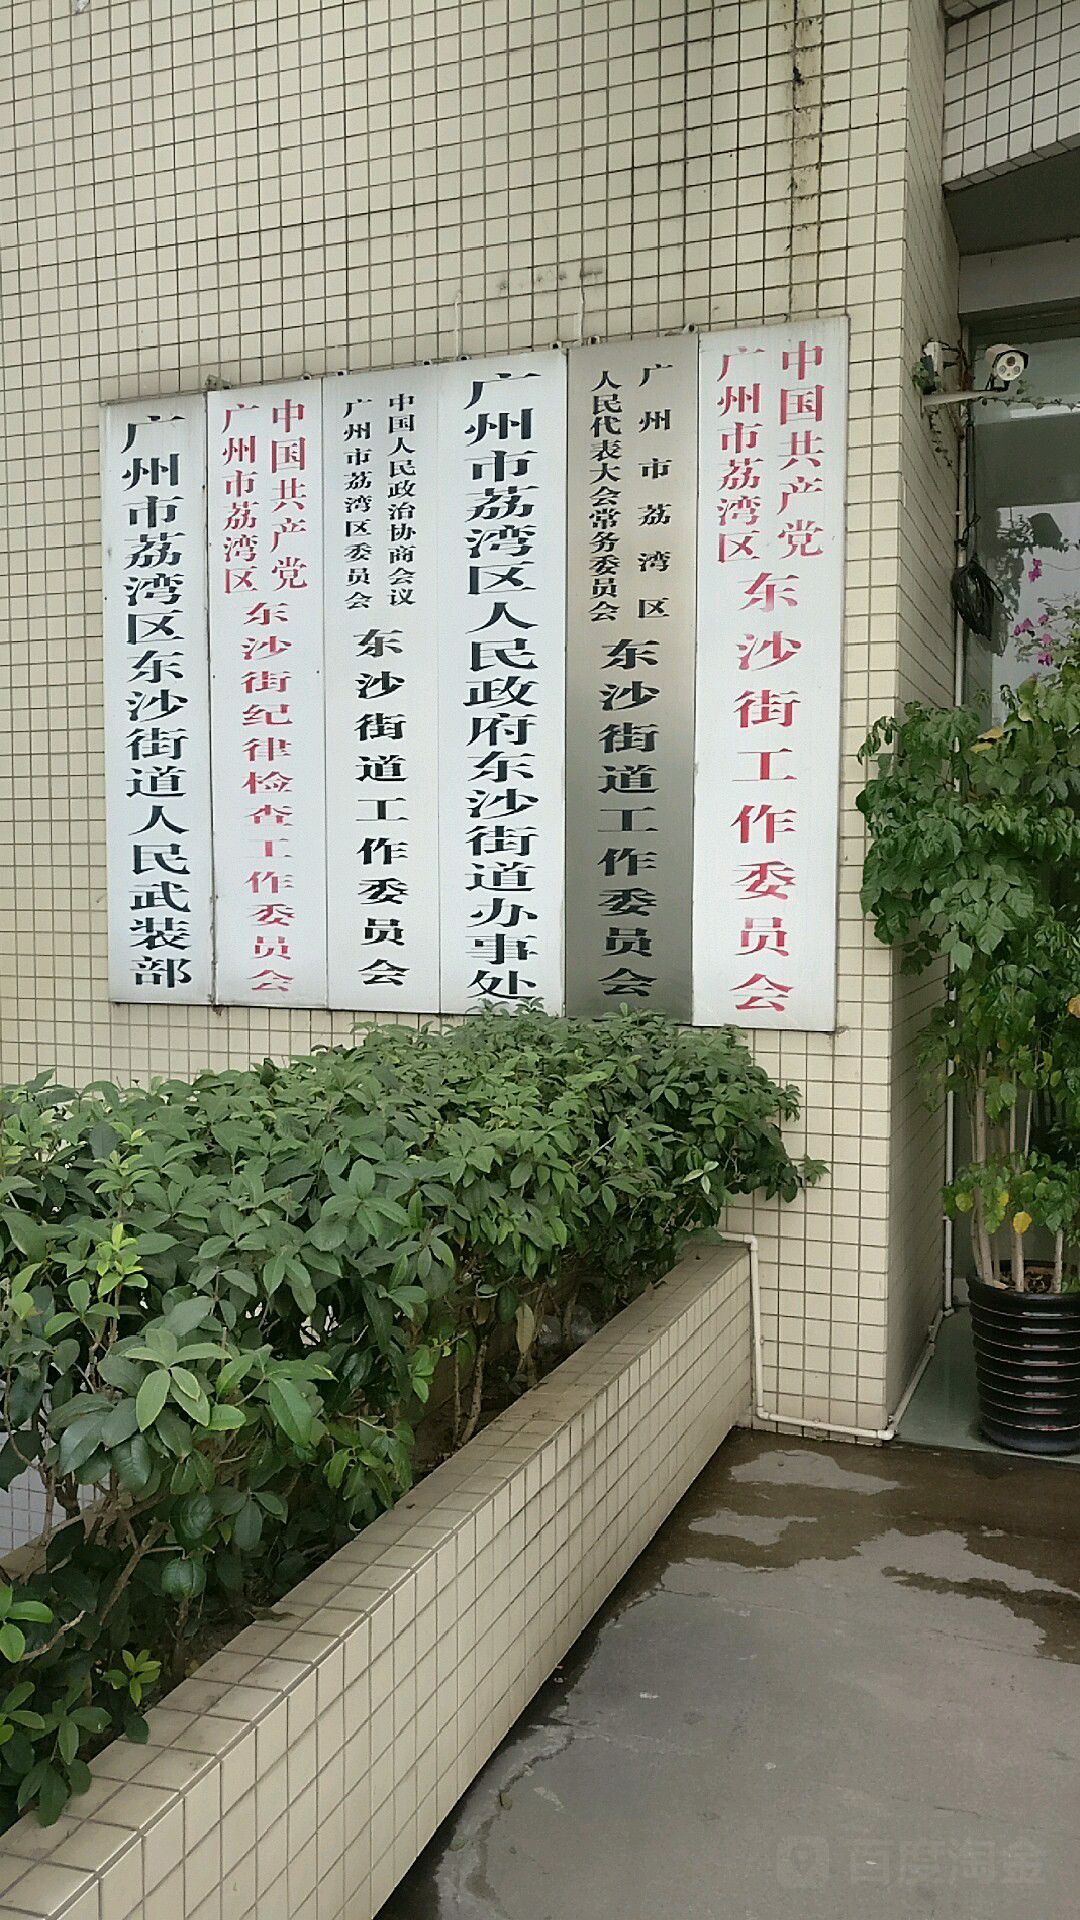 中国共产党
广州市荔湾区
东沙街工作委员会
广州市荔湾区
人民代表大会常务委员会
东沙街道工作委员会
广州市荔湾区人民政府东沙街道办事处
中国人民政治协商会议
广州市荔湾区委员会
东沙街道工作委员会
中国共产党
广州市荔湾区
东沙街纪律检查工作委员会
广州市荔湾区东沙街道人民武装部
百度淘金